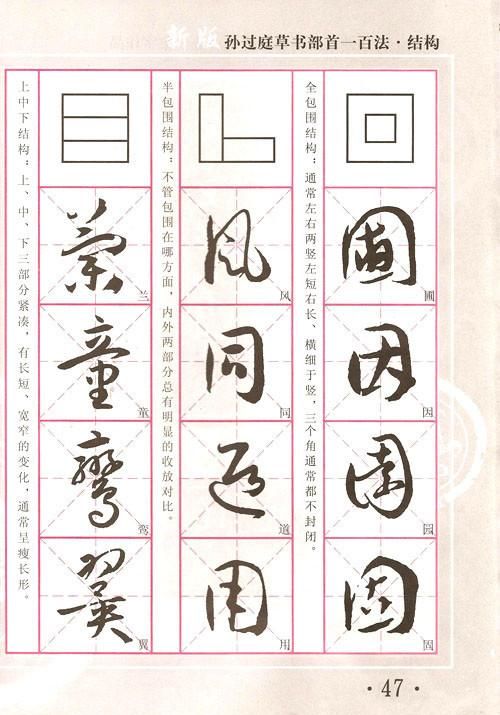 新版 孙过庭草书部首一百法·结构
全包围结构：通常左右两竖左短右长、横细于竖，三个角通常都不封闭。
圃
因
园
固
半包围结构：不管包围在哪方面，内外两部分总有明显的收放对比。
风
同
道
用
上中下结构：上、中、下三部分紧凑，有长短、宽窄的变化，通常呈瘦长形。
兰
童
鸾
翼
·47·